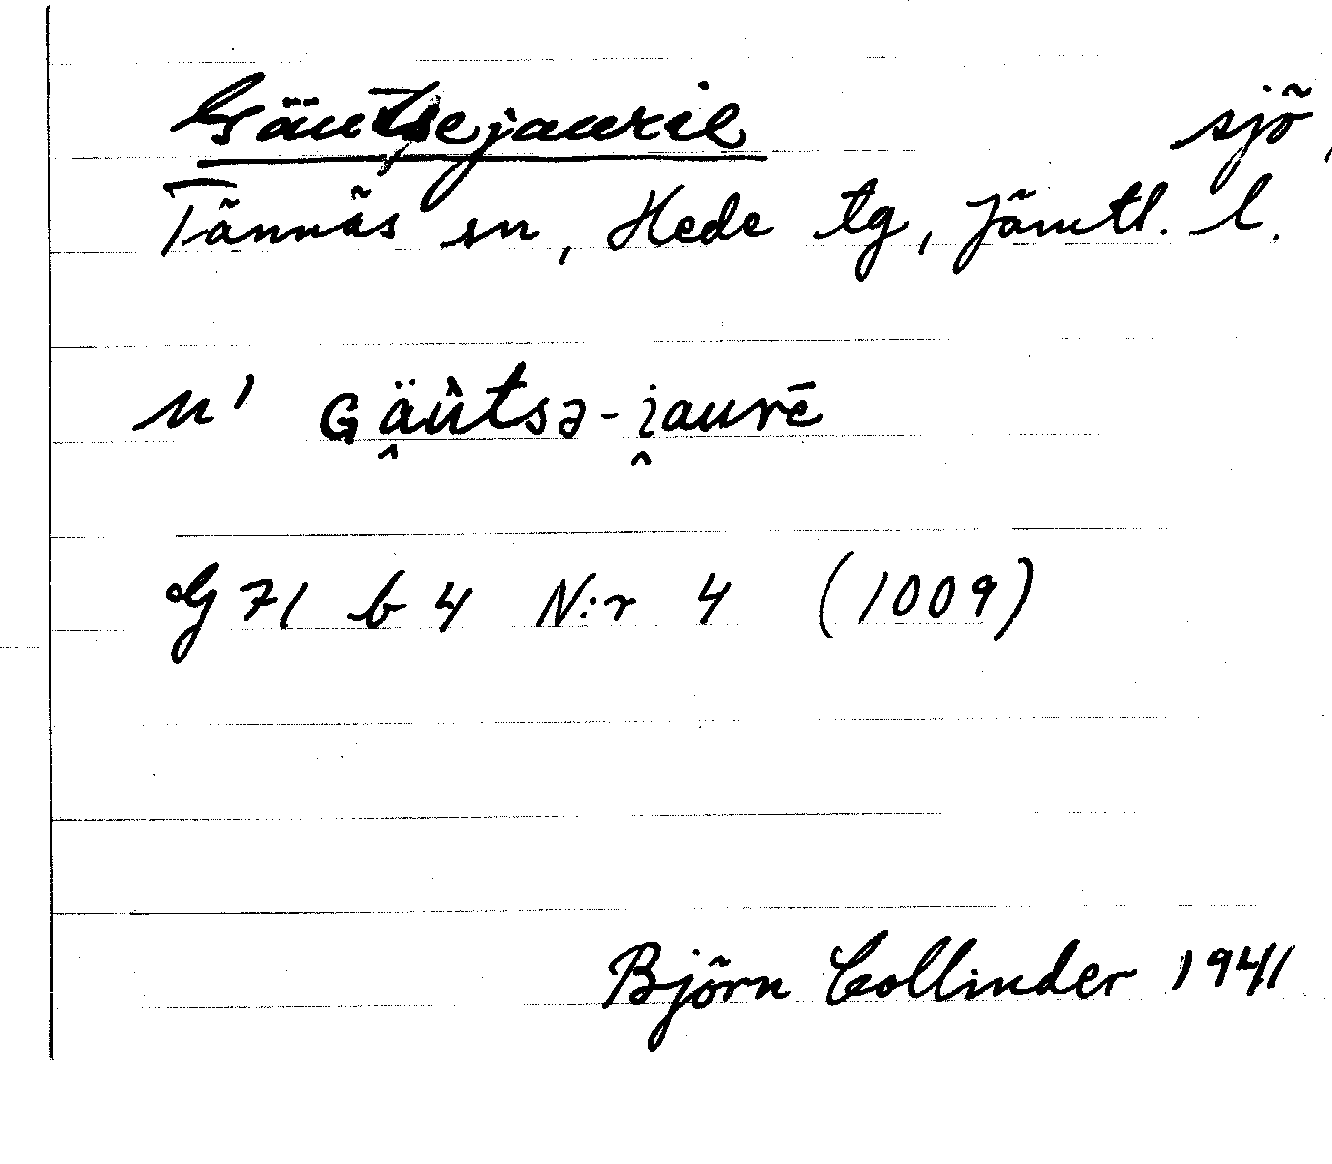 Gäutsejaurie sjö,
Tännäs sn, Hede tg, Jämtl. l.
n' Gä̭ùtsə-i̭aurē
G 71 b 4 N:r 4 (1009)
Björn Collinder 1941